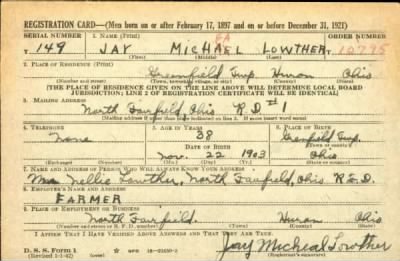 REGISTRATION CARD—(Men born on or after February 17, 1897 and on or before December 31, 1921)
SERIAL NUMBER 1. NAME (Print) ORDER NUMBER
T 149 JAY MICHAEL LOWTHER 10795
EA
(First) (Middle) (Last)
2. PLACE OF RESIDENCE (Print)
Greenfield Twp. Huron Ohio
(Number and street) (Town, township, village, or city) (County) (State)
[THE PLACE OF RESIDENCE GIVEN ON THE LINE ABOVE WILL DETERMINE LOCAL BOARD
JURISDICTION; LINE 2 OF REGISTRATION CERTIFICATE WILL BE IDENTICAL]
3. MAILING ADDRESS
North Fairfield, Ohio R.D #1
[Mailing address if other than place indicated on line 2. If same insert word same]
4. TELEPHONE 5. AGE IN YEARS 6. PLACE OF BIRTH
None 38 Greenfield Twp.
DATE OF BIRTH (Town or county)
Nov. 22 1903 Ohio
(Exchange) (Number) (Mo.) (Day) (Yr.) (State or country)
7. NAME AND ADDRESS OF PERSON WHO WILL ALWAYS KNOW YOUR ADDRESS
Mrs Nellie Lowther, North Fairfield, Ohio R.F.D.
8. EMPLOYER'S NAME AND ADDRESS
FARMER
9. PLACE OF EMPLOYMENT OR BUSINESS
North Fairfield. Huron Ohio
(Number and street or R. F. D. number) (Town) (County) (State)
I AFFIRM THAT I HAVE VERIFIED ABOVE ANSWERS AND THAT THEY ARE TRUE.
D. S. S. Form 1
(Revised 1-1-42) GPO (Registrant's signature)
Jay Micheal Lowther